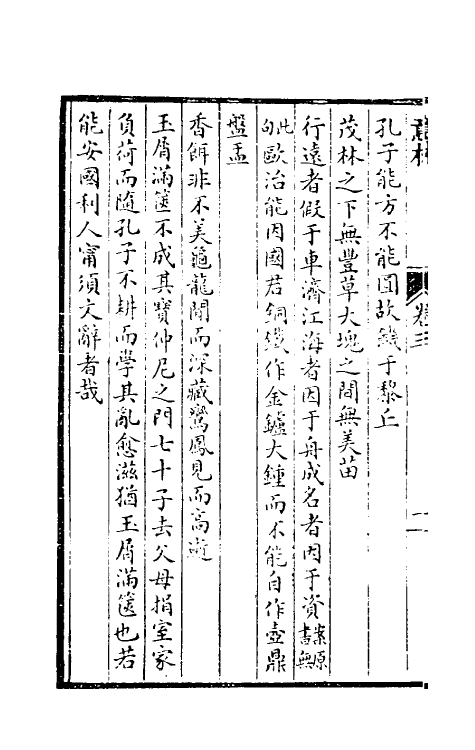 意林
卷三
二
孔子能方不能圓故饑于黎丘
茂林之下無豐草大塊之間無美苗
行遠者假于車濟江海者因于舟成名者因于資案原書無
此句歐冶能因國君銅鐵作金鑪大鍾而不能自作壺鼎
盤盂
香餌非不美龜龍聞而深藏鸞鳳見而高逝
玉屑滿篋不成其寶仲尼之門七十子去父母捐室家
負荷而隨孔子不耕而學其亂愈滋猶玉屑滿篋也若
能安國利人甯須文辭者哉